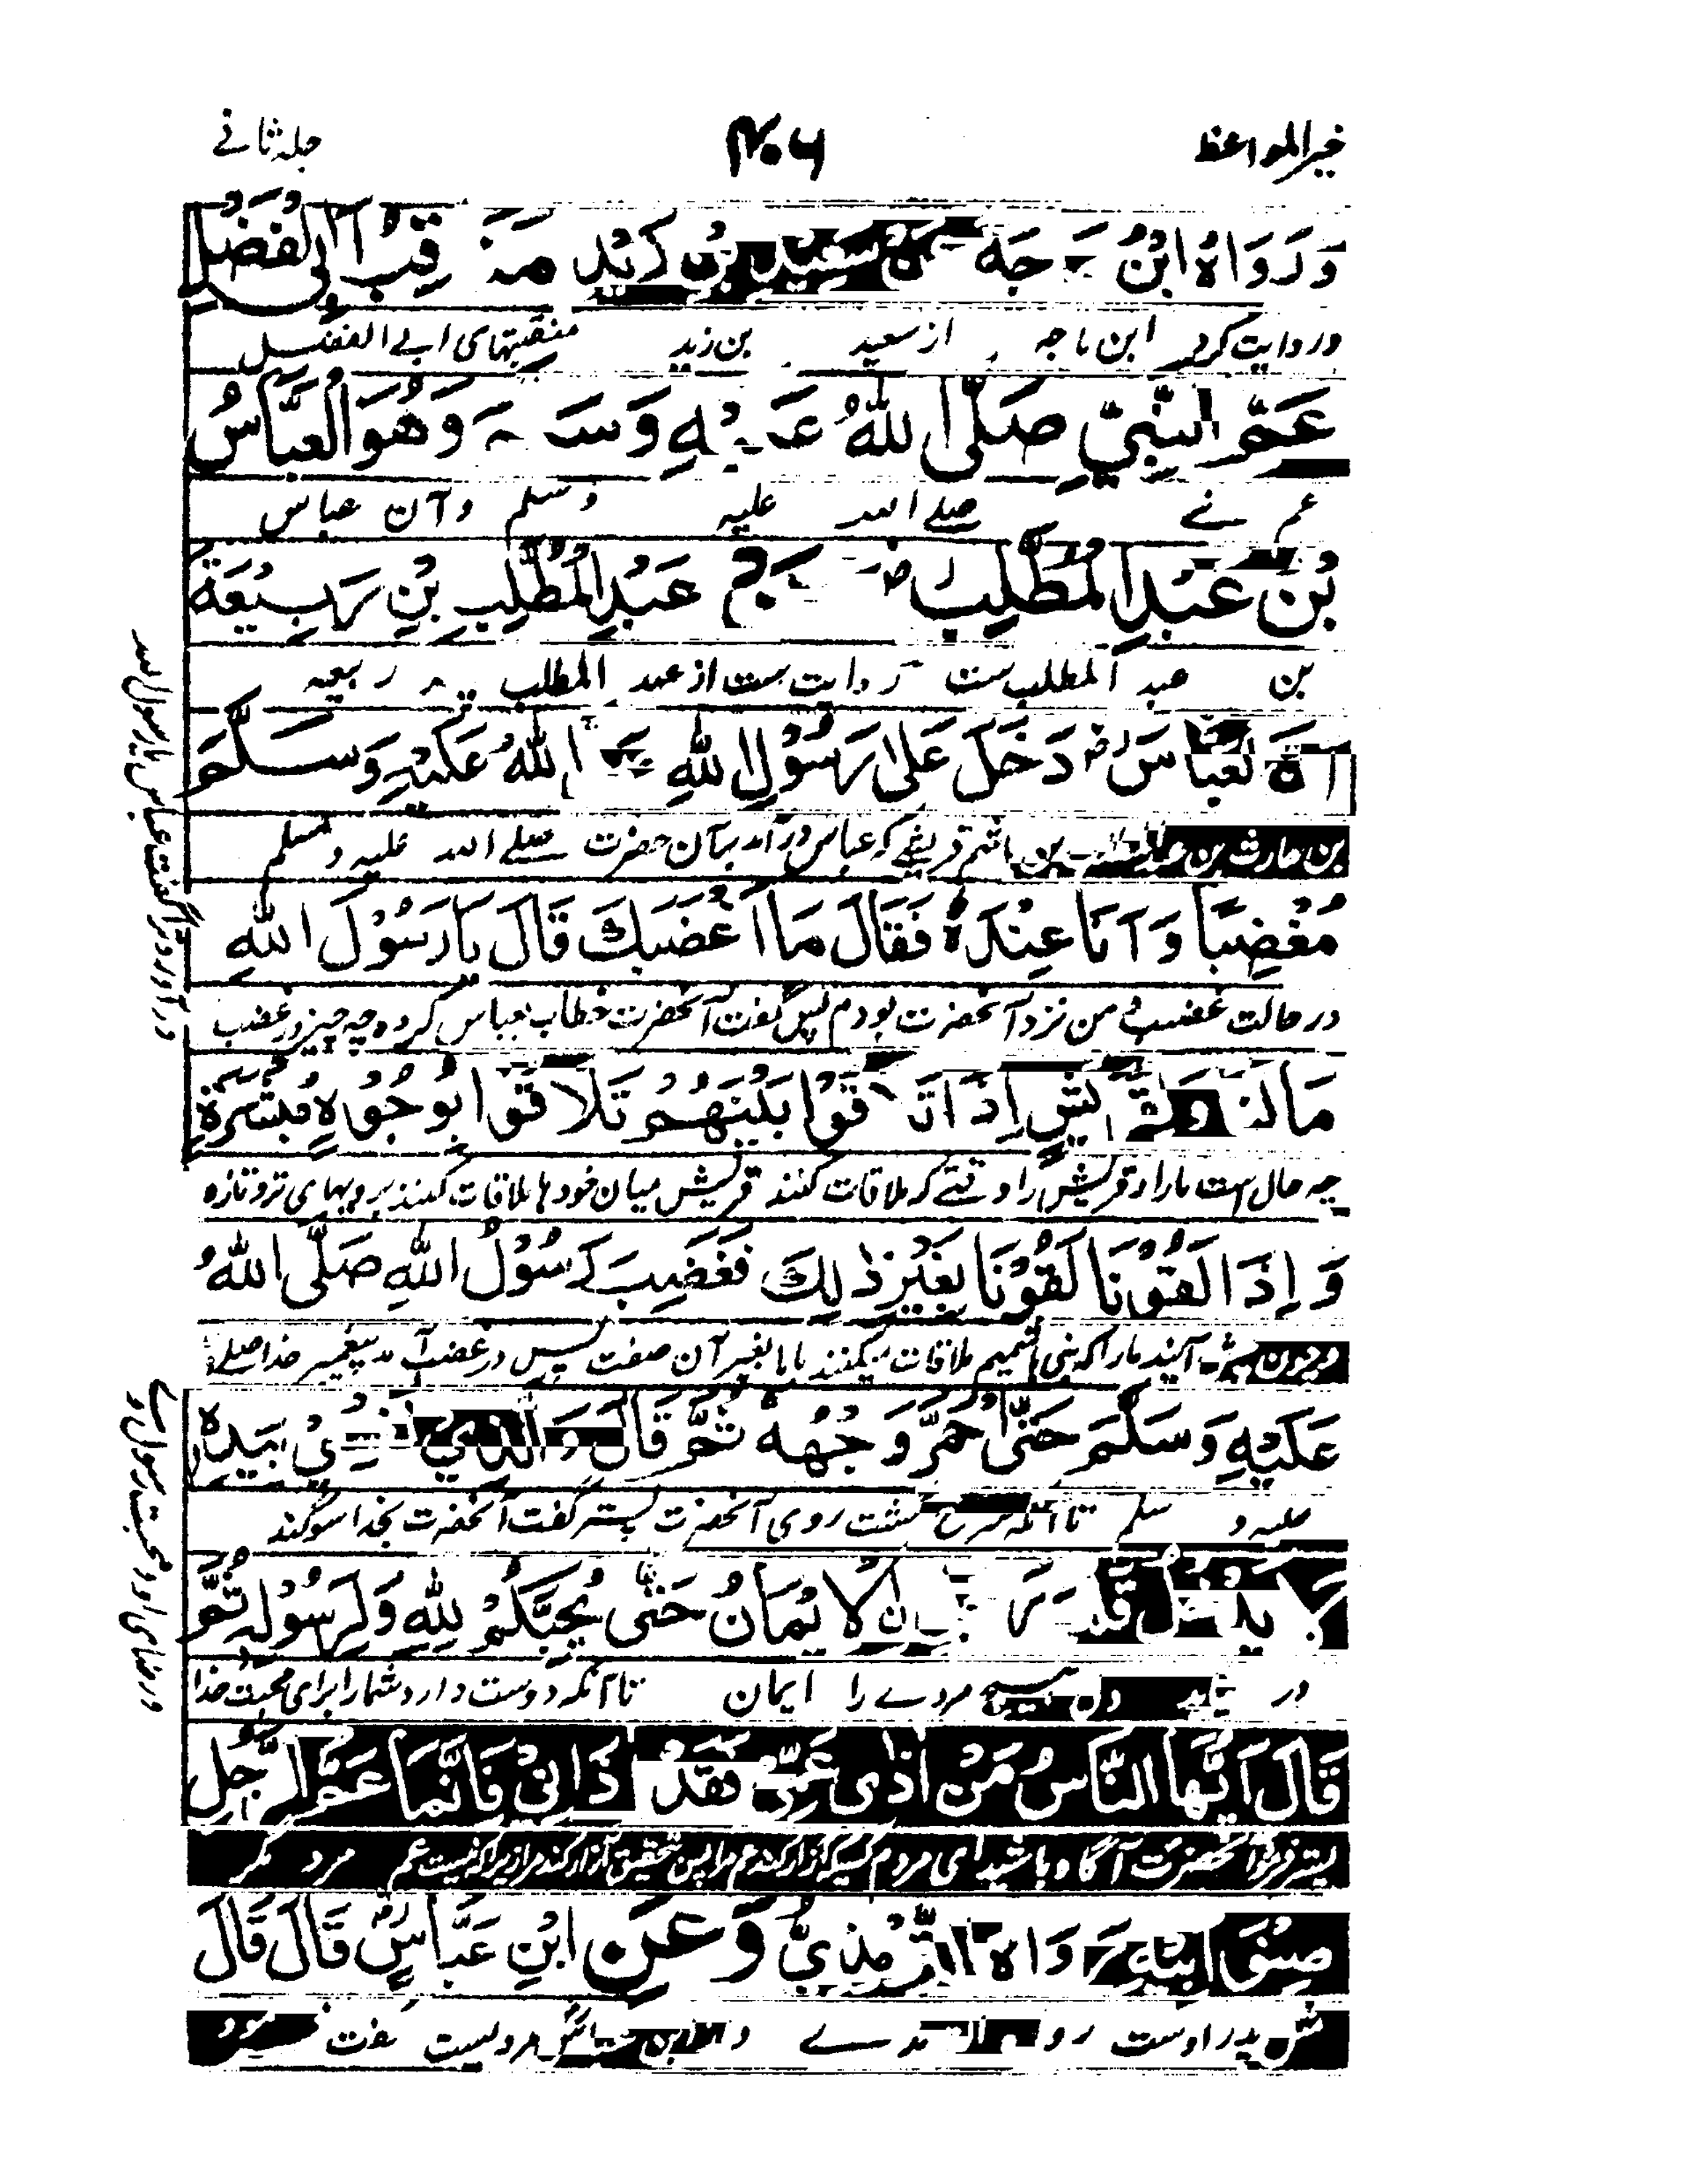 خیرالمواعظ
۴۰۶
جلد ثانے
وَرَوَاهُ ابْنُ مَاجَه عَنْ سَعِيدِ بْنِ زَيْدٍ مَنَاقِبُ اَبِي الْفَضْلِ
و روایت کرد ابن ماجه از سعید بن زید منقبتهای ابے الفضل
عَمِّ النَّبِيِّ صَلَّى اللهُ عَلَيْهِ وَسَلَّمَ وَهُوَ الْعَبَّاسُ
عم نبے صلے الله علیه وسلم و آن عباس
بْنُ عَبْدِ الْمُطَّلِبِ رض عَنْ عَبْدِ الْمُطَّلِبِ بْنِ رَبِيْعَةَ
بن عبد المطلب ست روایت ست از عبد المطلب بن ربیعه
اَنَّ الْعَبَّاسَ رض دَخَلَ عَلٰى رَسُوْلِ اللهِ صَلَّى اللهُ عَلَيْهِ وَسَلَّمَ
بن حارث بن عبدالمطلب بن هاشم قریشے که عباس درآمد بر آن حضرت صلے الله علیه وسلم
مُغْضَبًا وَاَنَا عِنْدَهُ فَقَالَ مَا اَغْضَبَكَ قَالَ يَا رَسُوْلَ اللهِ
در حالت غضب و من نزد آنحضرت بودم پس گفت آنحضرت خطاب بعباس کرده چه چیز در غضب
مَا لَنَا وَلِقُرَيْشٍ اِذَا تَلَاقَوْا بَيْنَهُمْ تَلَاقَوْا بِوُجُوْهٍ مُبْشَرَةٍ
چه حال است مارا و قریش را وقتے که ملاقات کنند قریش میان خودها ملاقات کنند برویهای تروتازه
وَاِذَا لَقُوْنَا لَقُوْنَا بِغَيْرِ ذٰلِكَ فَغَضِبَ رَسُوْلُ اللهِ صَلَّى اللهُ
و چون پیش آیند مارا که بنی هاشمیم ملاقات میکنند باما بغیر آن صفت پس در غضب آمد پیغمبر خدا صلے
عَلَيْهِ وَسَلَّمَ حَتَّى احْمَرَّ وَجْهُهُ ثُمَّ قَالَ وَالَّذِيْ نَفْسِيْ بِيَدِهٖ
علیه و سلم تا آنکه سرخ گشت روی آنحضرت پستر گفت آنحضرت بخدا سوگند
لَا يَدْخُلُ قَلْبَ رَجُلٍ نِ الْاِيْمَانُ حَتّٰى يُحِبَّكُمْ لِلّٰهِ وَلِرَسُوْلِهٖ ثُمَّ
در نیاید مردے را ایمان تا آنکه دوست دارد شمارا برای محبت خدا
قَالَ اَيُّهَا النَّاسُ مَنْ اٰذٰى عَمِّيْ فَقَدْ اٰذَانِيْ فَاِنَّمَا عَمُّ الرَّجُلِ
پستر فرمود آنحضرت آگاه باشید ای مردم کسیکه آزار کند عم مرا پس بتحقیق آزار کند مرا زیراکه نیست عم مرد مگر
صِنْوُ اَبِيْهِ رَوَاهُ التِّرْمِذِيُّ وَعَنِ ابْنِ عَبَّاسٍ رض قَالَ قَالَ
مثل پدر اوست رواه الترمذے و از ابن عباس مرویست گفت فرمود
در آورد ترا گفت عباس یا رسول الله
و رضای او و محبت رسول وے